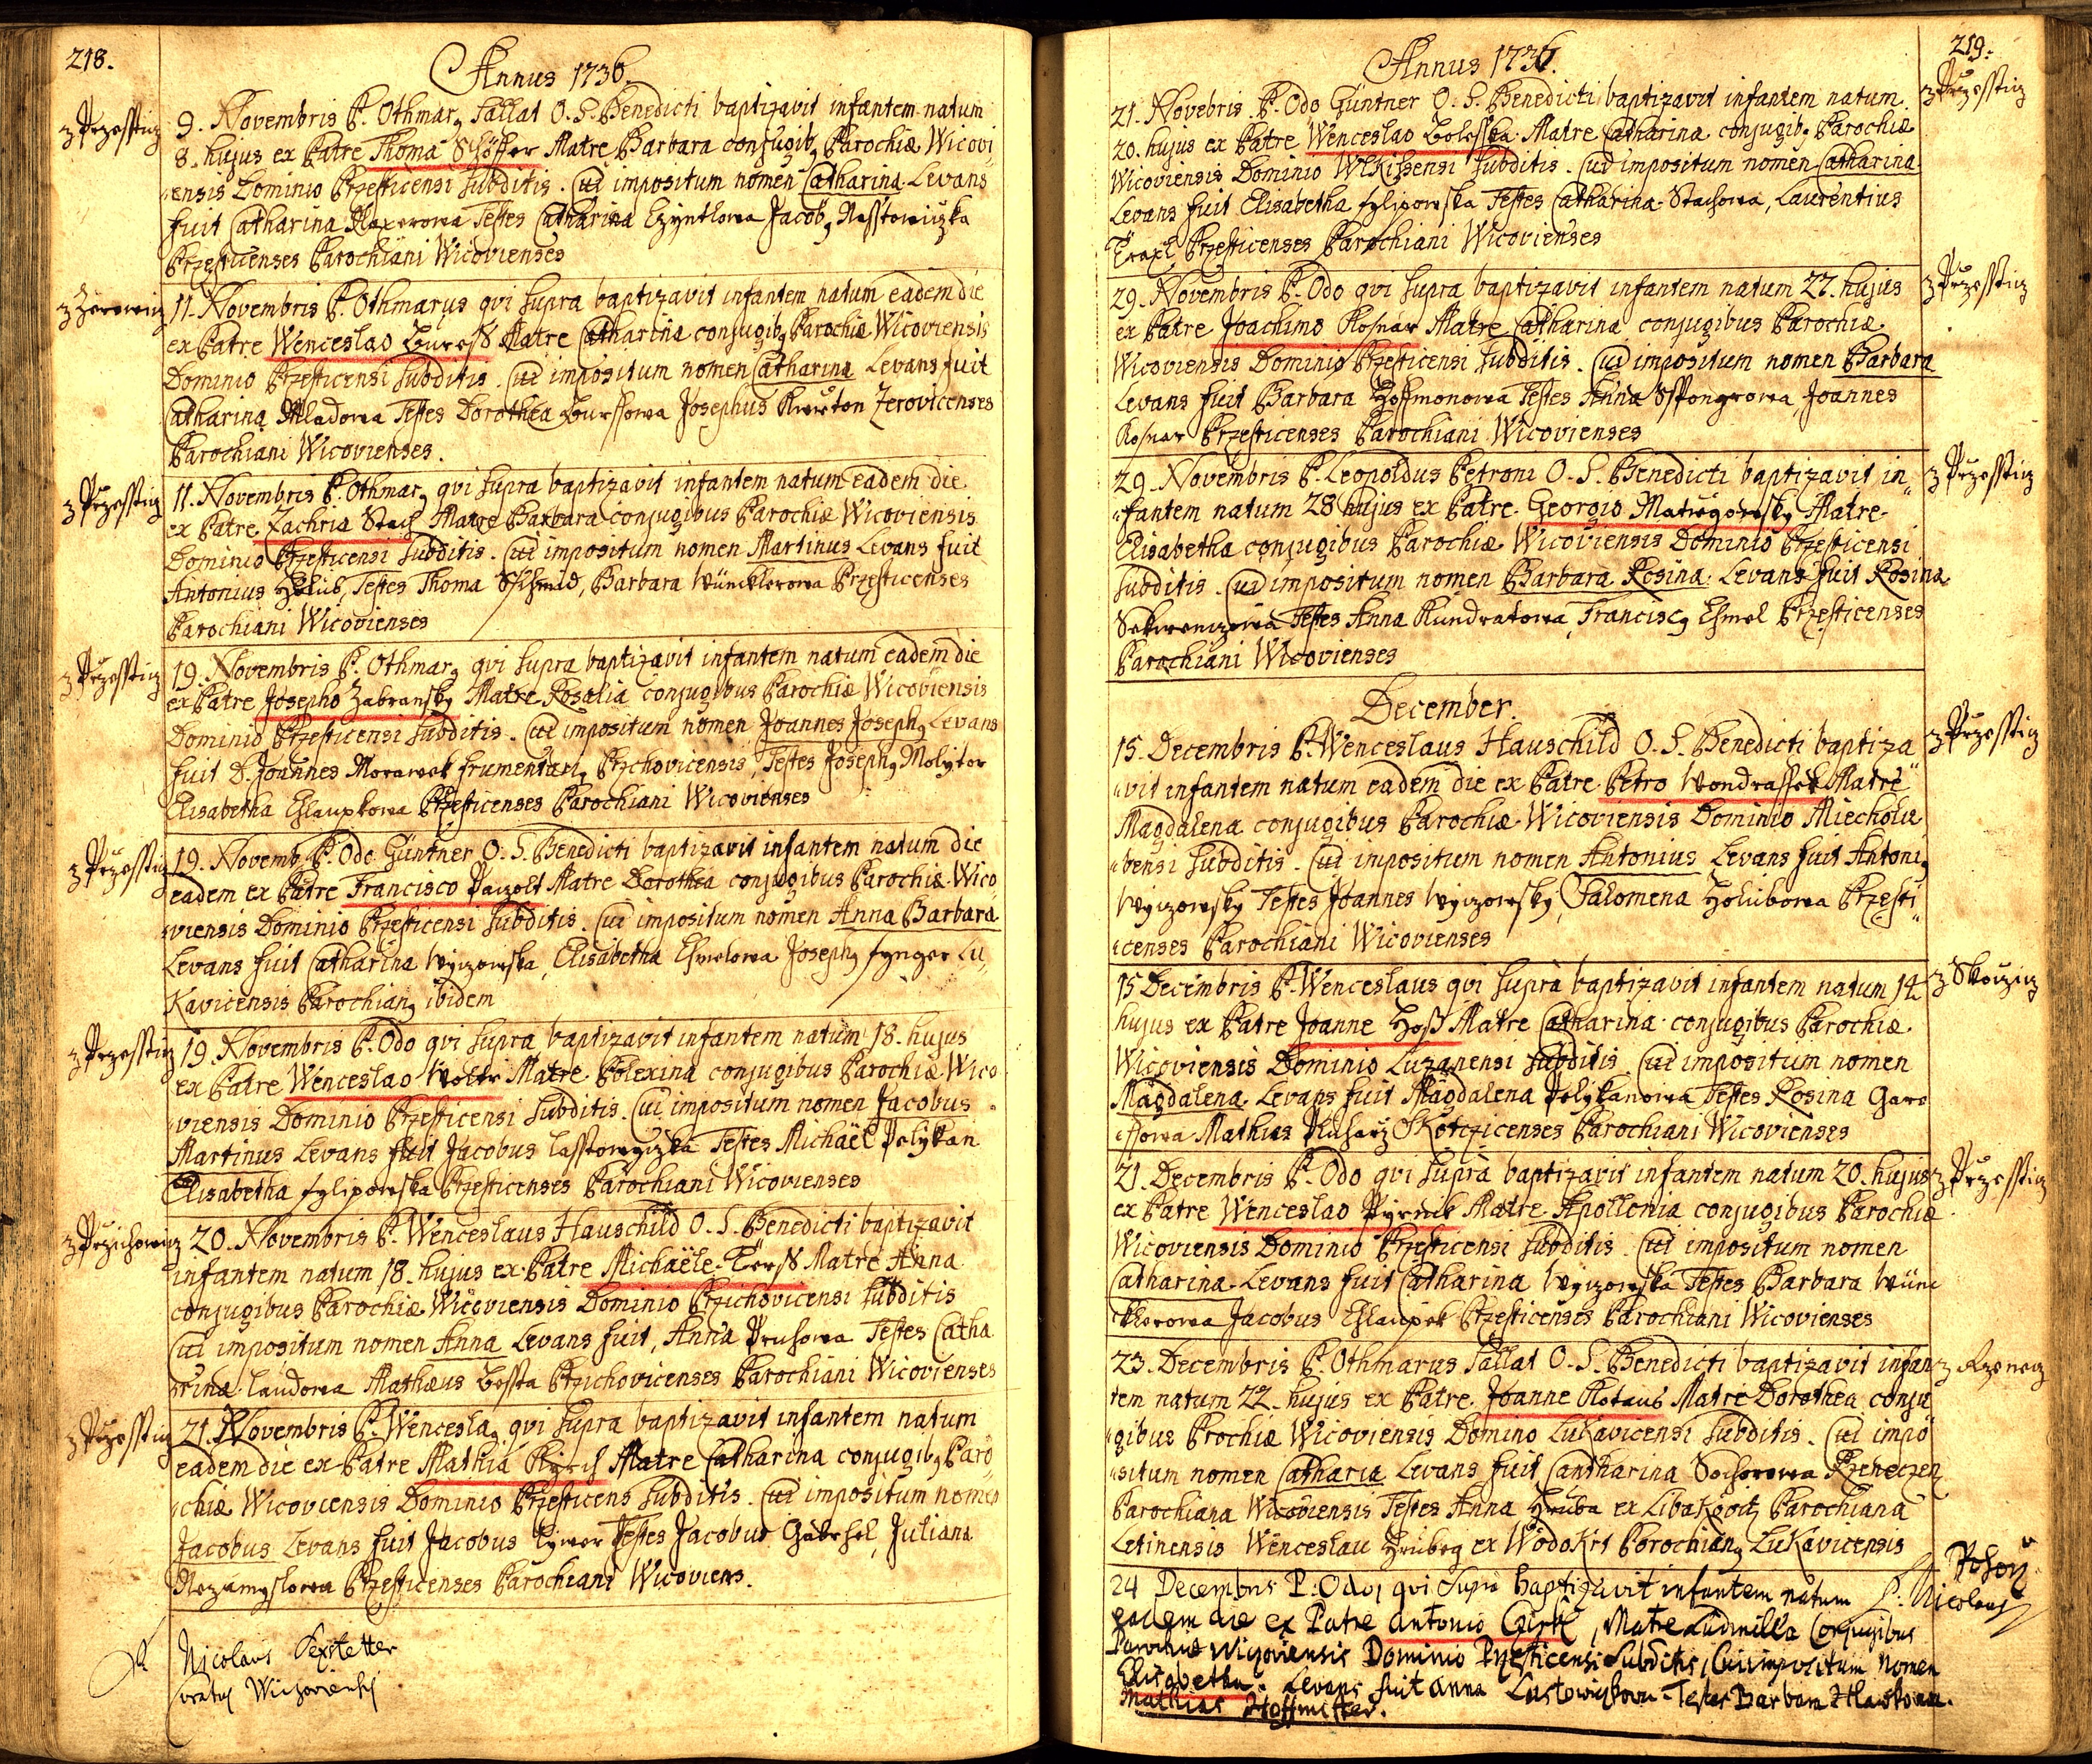 218.
Annus 1736.
z Przesstiz
9. Novembris P. Othmarq Sallat O. S. Benedicti baptizavit infantem natum
8. hujus ex Patre Thoma Matre Barbara conjugibq Parochiæ Wicovi„
„ensis Dominio Przesticensi subditis. Cui impositum nomen Catharina Levans
fuit Catharina Testes Catharina Jacobq
Przesticenses Parochiani Wicovienses
z Zerowiz
11. Novembris P. Othmarus qvi supra baptizavit infantem natum eadem die
ex Patre Wenceslao Buress Matre Catharina conjugibq Parochiæ Wicoviensis
Dominio Przesticensi subditis. Cui impositum nomen Catharina Levans fuit
Catharina Mladowa Testes Dorothea Bursowa Josephus Zerovicenses
Parochiani Wicovienses.
z Przesstiz
11. Novembris P. Othmarq qvi supra baptizavit infantem natum eadem die
ex Patre Zachria Stach Matre Barbara conjugibus Parochiæ Wicoviensis
Dominio Przesticensi subditis. Cui impositum nomen Martinus Levans fuit
Antonius Holub, Testes Thoma Sskhmid, Barbara Wüncklerowa Przesticenses
Parochiani Wicovienses
z Przesstiz
19. Novembris P. Othmarq qvi supra baptizavit infantem natum eadem die
ex Patre Josepho Zabransky Matre Rosalia conjugibus Parochiæ Wicoviensis
Dominio Przesticensi subditis. Cui impositum nomen Joannes Josephq Levans
fuit D. Joannes Morawek frumentariq Przchovicensis, Testes Josephq Molytor
Elisabetha Chlaupkowa Przesticenses Parochiani Wicovienses
z Przesstiz
19. Novemb. P. Odo Güntner O. S. Benedicti baptizavit infantem natum die
eadem ex Patre Francisco Paizolt Matre Dorothea conjugibus Parochiæ Wico
„viensis Dominio Przesticensi subditis. Cui impositum nomen Anna Barbara
Levans fuit Catharina Wyizowska, Elisabetha Chmelowa Josephq fynger Lu„
Kavicensis Parochianq ibidem
z Przesstiz
19. Novembris P. Odo qvi supra baptizavit infantem natum 18. hujus
ex Patre Wenceslao Matre Polexina conjugibus Parochiæ Wico
„viensis Dominio Przesticensi subditis. Cui impositum nomen Jacobus
Martinus Levans fuit Jacobus Testes Michaël Polykan
Elisabetha fylipowska Przesticenses Parochiani Wicovienses
z Przichowiz
20. Novembris P. Wenceslaus Hauschild O. S. Benedicti baptizavit
infantem natum 18. hujus ex Patre Michaële Matre Anna
conjugibus Parochiæ Wicoviensis Dominio Przichovicensi subditis
Cui impositum nomen Anna Levans fuit, Anna Pruhowa Testes Catha
„rina Laudowa Mathæus Bossta Przichovicenses Parochiani Wicovienses
z Przesstiz
21. Novembris P. Wenceslaq qvi supra baptizavit infantem natum
eadem die ex Patre Mathia Matre Catharina conjugibq Paro„
„chiæ Wicoviensis Dominio Przesticens subditis. Cui impositum nomen
Jacobus Levans fuit Jacobus Testes Jacobus Gabrhel, Juliana
Nezamyslowa Przesticenses Parochiani Wicoviens.
Nicolaus Sexstetter
219.
Annus 1736.
z Przesstiz
21. Novebris P. Odo Güntner O. S. Benedicti baptizavit infantem natum
20. hujus ex Patre Wenceslao Boleska Matre Catharina conjugibq Parochiæ
Wicoviensis Dominio subditis. Cui impositum nomen Catharina
Levans fuit Elisabetha fylipowska Testes Catharina Stachowa, Laurentius
Przesticenses Parochiani Wicovienses
z Przesstiz
29. Novembris P. Odo qvi supra baptizavit infantem natum 27. hujus
ex Patre Joachimo Kosnar Matre Catharina conjugibus Parochiæ
Wicoviensis Dominio Przesticensi subditis. Cui impositum nomen Barbara
Levans fuit Barbara Hoffmonowa Testes Anna Sspongrowa Joannes
Kosnar Przesticenses Parochiani Wicovienses
z Przesstiz
29. Novembris P. Leopoldus Petroni O. S. Benedicti baptizavit in„
„fantem natum 28 hujus ex Patre Georgio Matiegowsky Matre
Elisabetha conjugibus Parochiæ Wicoviensis Dominio Przesticensi
subditis. Cui impositum nomen Barbara Rosina. Levans fuit Rosina
Testes Anna Kundratowa, Franciscq Chmel Przesticenses
Parochiani Wicovienses
December.
z Przesstiz
15. Decembris P. Wenceslaus Hauschild O. S. Benedicti baptiza„
„vit infantem natum eadem die ex Patre Petro Wondrassek Matre
Magdalena conjugibus Parochiæ Wicoviensis Dominio Miecholu
„bensi subditis. Cui impositum nomen Antonius Levans fuit Antoniq
Wyizowsky Testes Joannes Wyizowsky, Salomena Holubowa Przesti„
„censes Parochiani Wicovienses
z Skoczicz
15 Decembris P. Wenceslaus qvi supra baptizavit infantem natum 14
hujus ex Patre Joanne Hoss Matre Catharina conjugibus Parochiæ
Wicoviensis Dominio Luzanensi subditis. Cui impositum nomen
Magdalena Levans fuit Magdalena Polykanowa Testes Rosina Gare
„ssowa Mathias Skotczicenses Parochiani Wicovienses
z Przesstiz
21. Decembris P. Odo qvi supra baptizavit infantem natum 20. hujus
ex Patre Wenceslao Matre Apollonia conjugibus Parochiæ
Wicoviensis Dominio Przesticensi subditis. Cui impositum nomen
Catharina Levans fuit Catharina Wyizowska Testes Barbara Wün
„cklerowa Jacobus Chlaupek Przesticenses Parochiani Wicovienses
z Rzenecz
23. Decembris P. Othmarus Sallat O. S. Benedicti baptizavit infan
tem natum 22. hujus ex Patre Joanne Matre Dorothea conju
„gibus Prochiæ Wicoviensis Domino Lukavicensi subditis. Cui impo
„situm nomen Catharia Levans fuit Cantharina Sochorowa Rzeneczen
Parochiana Wicoviensis Testes Anna Hruba ex Parochiana
Letinensis Wenceslau Hrubeg ex Wodokrt Porochianq Lukavicensis
P. Nicolaus
24 Decembris P: Odo, qvi supra baptizavit infantem natum
eadem die ex Patre Antonio, Matre Ludmilla Conjugibus
Parochiæ Wicoviensis Dominio Przesticensi subditis, Cui impositum Nomen
Elisabetha. Levans fuit Anna Testes Barbara
Mathias Hoffmister.